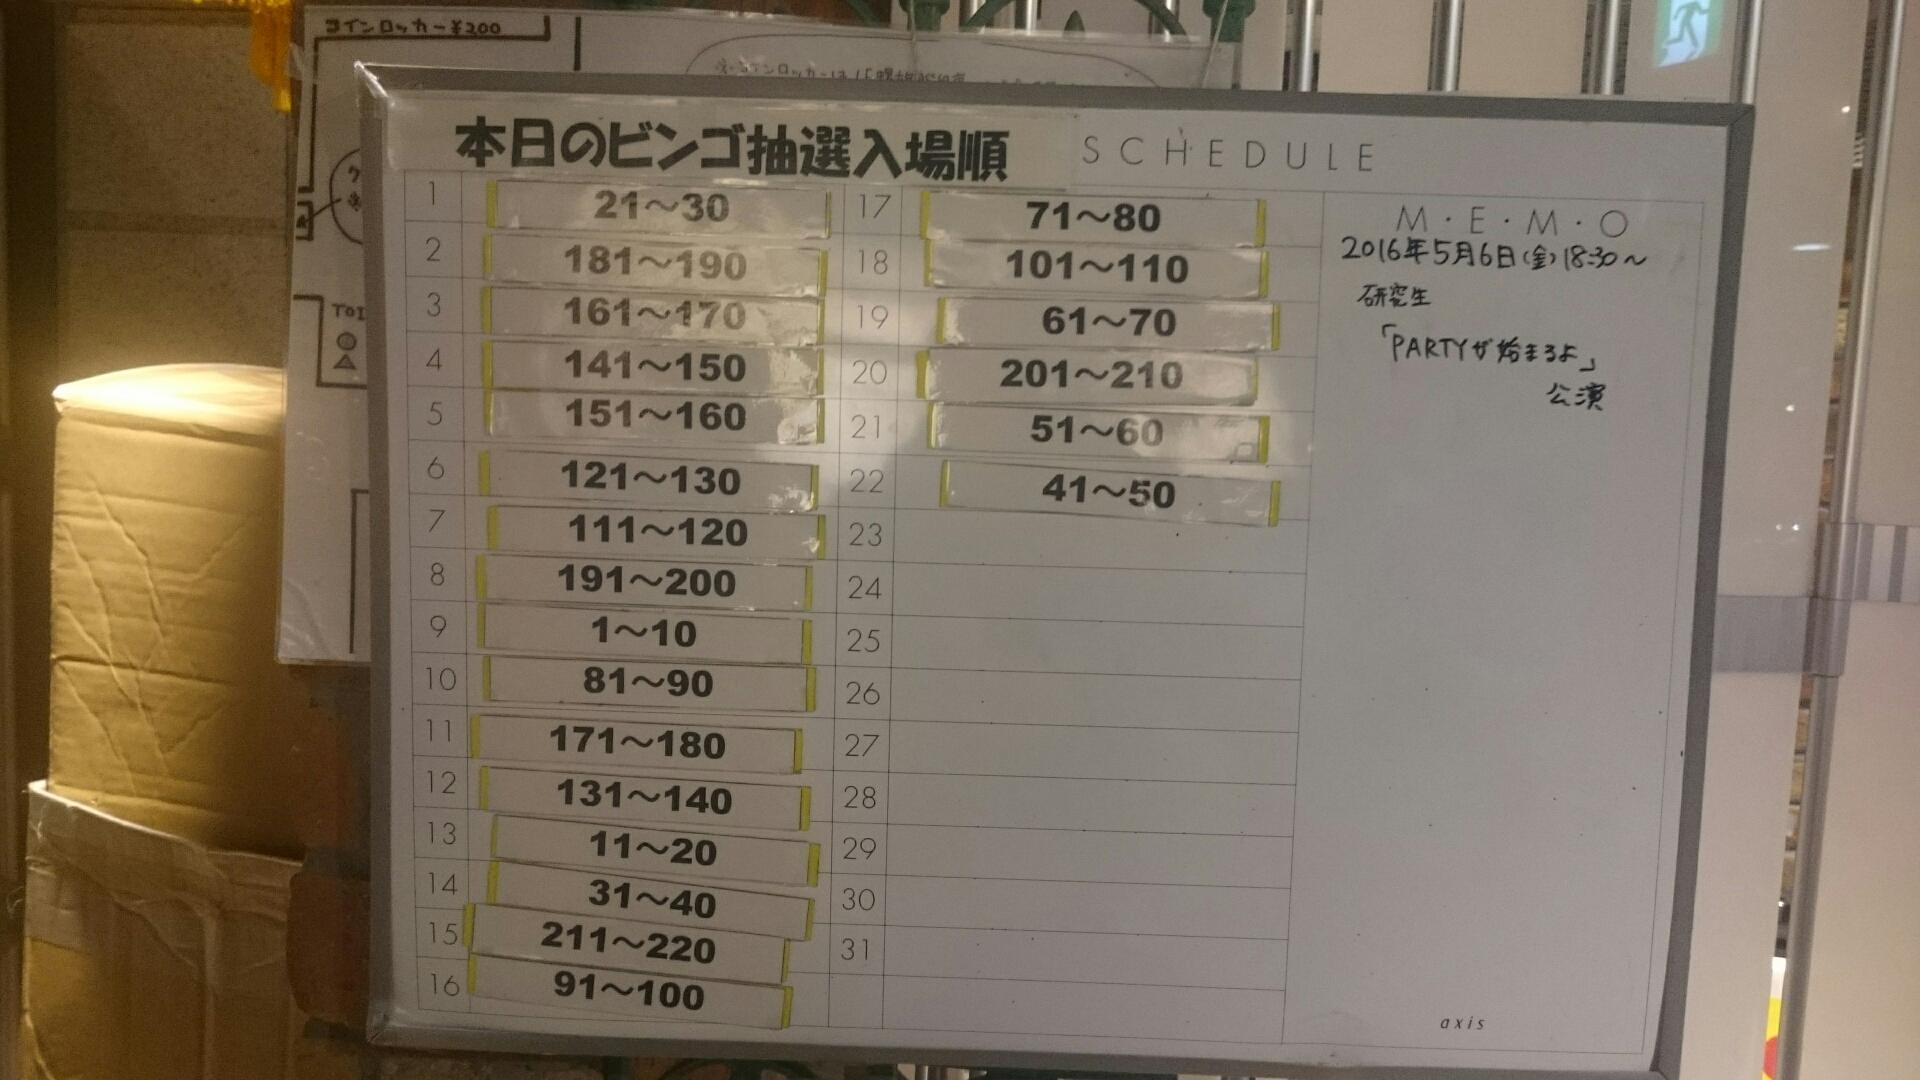 コインロッカー¥200
本日のビンゴ抽選入場順
SCHEDULE
1 21～30
2 181～190
3 161～170
4 141～150
5 151～160
6 121～130
7 111～120
8 191～200
9 1～10
10 81～90
11 171～180
12 131～140
13 11～20
14 31～40
15 211～220
16 91～100
17 71～80
18 101～110
19 61～70
20 201～210
21 51～60
22 41～50
23
24
25
26
27
28
29
30
31
M・E・M・O
2016年5月6日(金)18:30～
研究生
「PARTYが始まるよ」
公演
axis